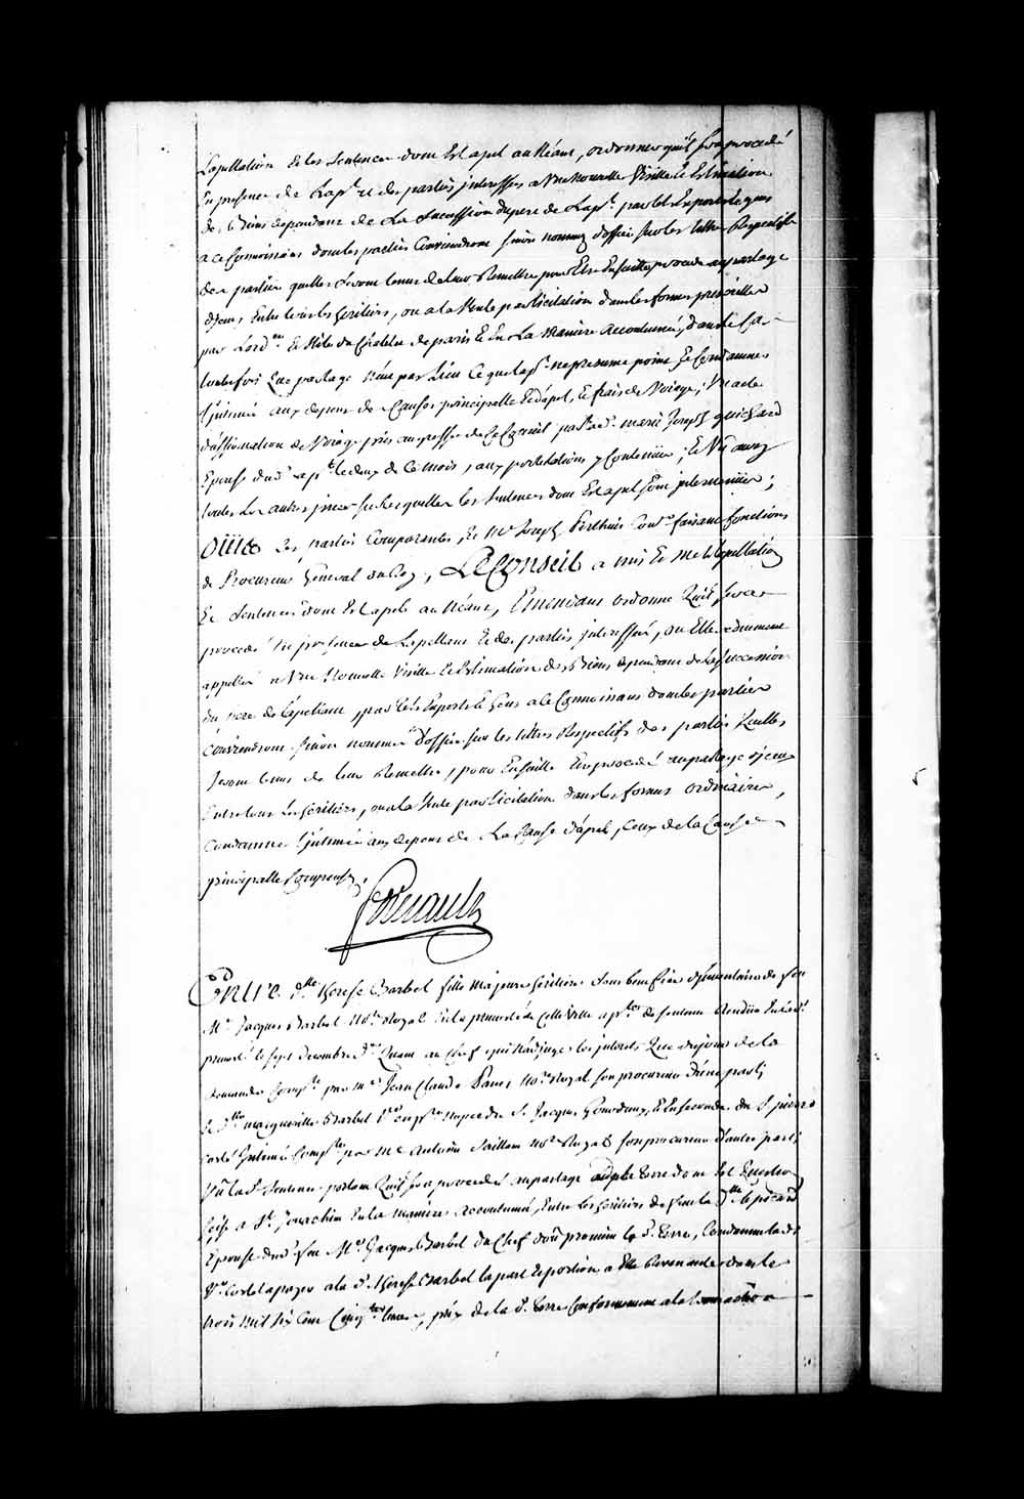 L'apellation et les sentences dont est apel au Néant, ordonner qu'il sera procedé
En presence de l'ap.te et des parties interessées a Une Nouvelle Visitte et Estimation
des Biens dependans de La Succession du pere de L'ap.t par tels Experts et gens
a ce Connoissans dont les parties Conviendront sinon nommez d'office sur les tittres Respectifs
des parties qu'elles seront tenues de leur Remettre pour Estre Ensuitte procedé au partage
d'iceux Entre tous les heritiers, ou a la Vente par licitation dans les formes prescrittes
par L'ord.ce Et Stile du Chatelet de paris Et En La Maniere Accoutumée, dans le Cas
toutefois Que partage N'eut pas Lieu Ce que l'ap.t ne presume point Et Condamner
l'intimé aux depens des Causes principalle Et d'apel, Et frais de Voyage; Un acte
d'affirmation de Voyage pris au greffe de Ce Conseil par la d. marie Joseph guichard
Epouse dud. ap.t le deux de Ce mois, aux protestations y Contenües; Et Vû aussy
toutes Les autres pieces sur lesquelles les sentences dont Est apel sont intervenües;
OÜIES Les parties Comparantes, Et M.e Joseph Perthuis Con.er faisant fonctions
de Procureur General du Roy, LE CONSEIL a mis Et Met L'apellation
Et sentences dont Est apel au Néant, Emendant ordonne Qu'il sera
procedé En presence de L'apellant Et des parties interessées, ou Elles düement
appellées a Une Nouvelle Visitte Et Estimation des Biens dependans de La Succession
du pere de l'apellant, par tels Experts Et Gens a Ce Connoissans dont les parties
Conviendront sinon nommés d'office sur les tittres Respectifs des parties Qu'elles
seront tenues de leur Remettre, pour Ensuitte Etre procedé au partage d'iceux
Entre tous Les heritiers, ou a la Vente par Licitation dans les formes ordinaires,
Condamne l'intimé aux depens de La Cause d'apel, Ceux de la Cause
principalle Compensés.
Entre d.lle therese Barbel fille majeure heritiere sous benefice d'inventaire de feu
M.e Jacques Barbel No.re Royal En la prevosté de Cette Ville ap.te de sentence Rendüe En lad.
prevosté le sept decembre d.er Quant au Chef qui N'adjuge les interets Que du jour de la
demande Comp.te par M.e Jean Claude Panet No.re Royal son procureur d'une part;
Et d.lle Barbel V.ve En p.res Nopces du S. Jacques Gourdeau, Et En secondes du S. pierre
intimée Comp.te par Me Antoine Saillant No.re Royal son procureur d'autre part;
Vû la d. sentence portant Qu'il sera procedé au partage de la terre dont Est Question
scise a St. Joachim En la maniere Accoutumée, Entre Les heritiers de feüe la D.lle le picard
Epouse dud. feu M.e Jacques Barbel du Chef dont provient la d. terre, Condamne lad.
V.ve a payer a la d. therese Barbel la part Et portion a Elle Revenante dans les
trois mil six Cent Cinq.te livres, prix de la d. terre Conformement a la